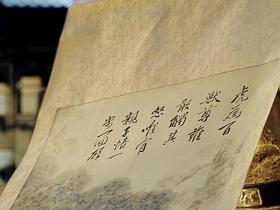 虎為百
獸尊誰
敢觸其
怒惟有
親子情一
步一回顧